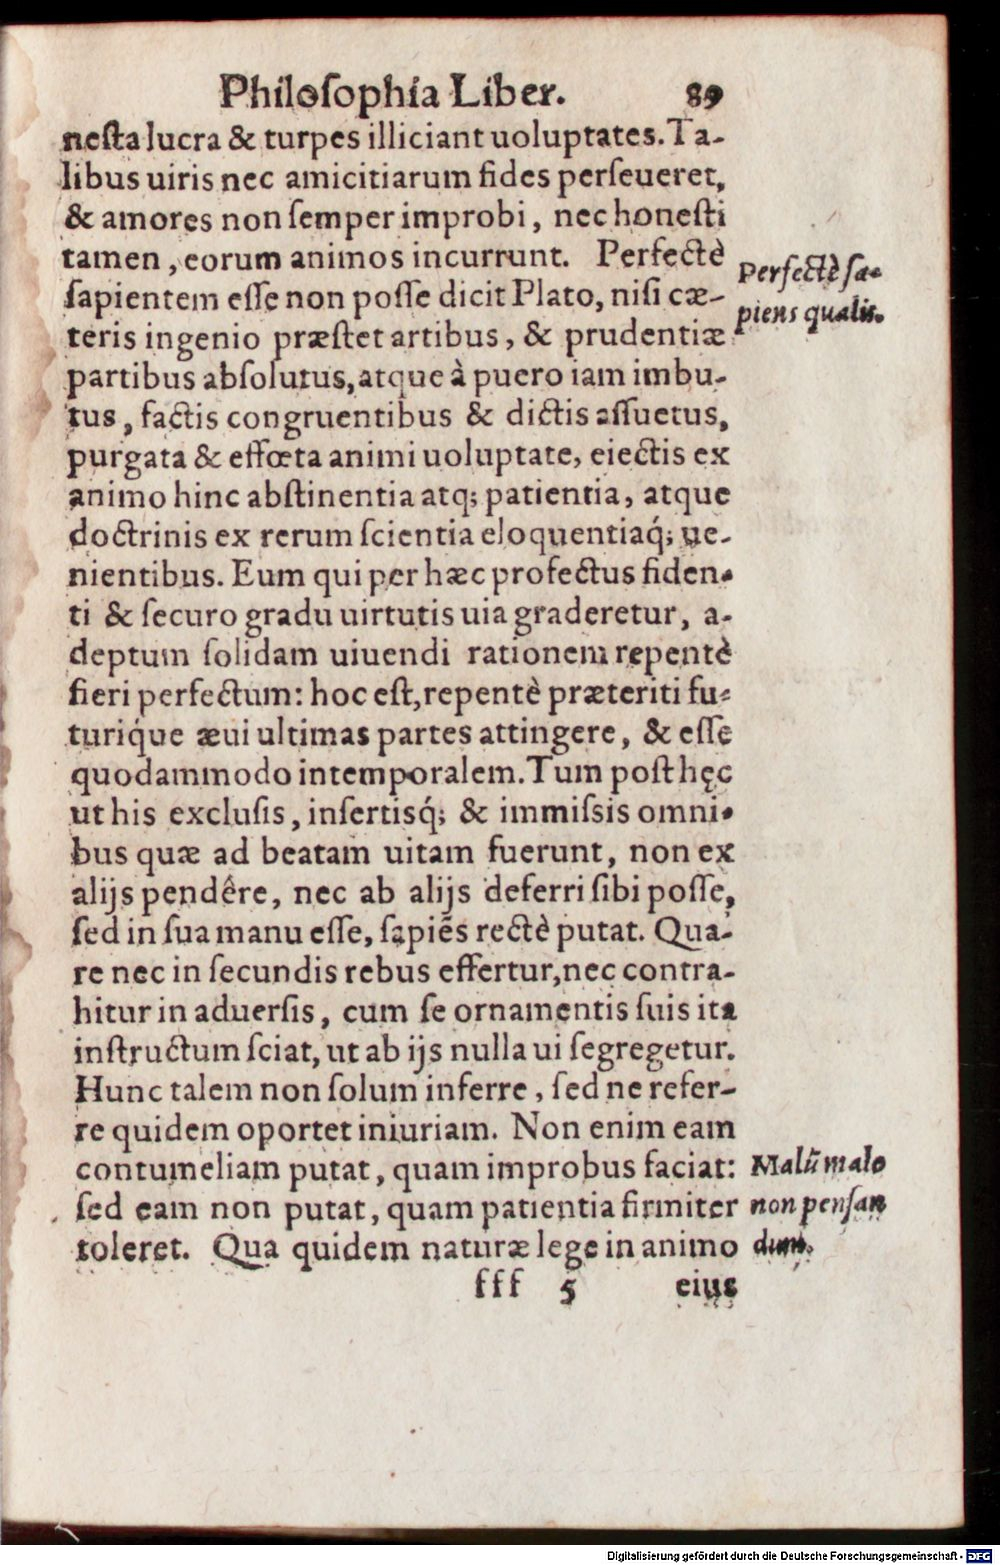 Philoſophia Liber. 89
neſta lucra & turpes illiciant uoluptates. Ta-
libus uiris nec amicitiarum fides perſeueret,
& amores non ſemper improbi, nec honeſti
tamen, eorum animos incurrunt. Perfectè
ſapientem eſſe non poſſe dicit Plato, niſi cæ-
Perfectè ſa-
piens qualis.
teris ingenio præſtet artibus, & prudentiæ
partibus abſolutus, atque à puero iam imbu-
tus, factis congruentibus & dictis aſſuetus,
purgata & effœta animi uoluptate, eiectis ex
animo hinc abſtinentia atq; patientia, atque
doctrinis ex rerum ſcientia eloquentiaq́; ue-
nientibus. Eum qui per hæc profectus fiden-
ti & ſecuro gradu uirtutis uia graderetur, a-
deptum ſolidam uiuendi rationem repentè
fieri perfectum: hoc eſt, repentè præteriti fu-
turiq́ue æui ultimas partes attingere, & eſſe
quodammodo intemporalem. Tum poſt hęc
ut his excluſis, inſertisq́; & immiſsis omni-
bus quæ ad beatam uitam fuerunt, non ex
alijs pendêre, nec ab alijs deferri ſibi poſſe,
ſed in ſua manu eſſe, ſapiẽs rectè putat. Qua-
re nec in ſecundis rebus effertur, nec contra-
hitur in aduerſis, cum ſe ornamentis ſuis ita
inſtructum ſciat, ut ab ijs nulla ui ſegregetur.
Hunc talem non ſolum inferre, ſed ne refer-
re quidem oportet iniuriam. Non enim eam
contumeliam putat, quam improbus faciat:
ſed eam non putat, quam patientia firmiter
toleret. Qua quidem naturæ lege in animo
Malũ malo
non penſan
dum.
fff 5 eius
Digitalisierung gefördert durch die Deutsche Forschungsgemeinschaft - DFG